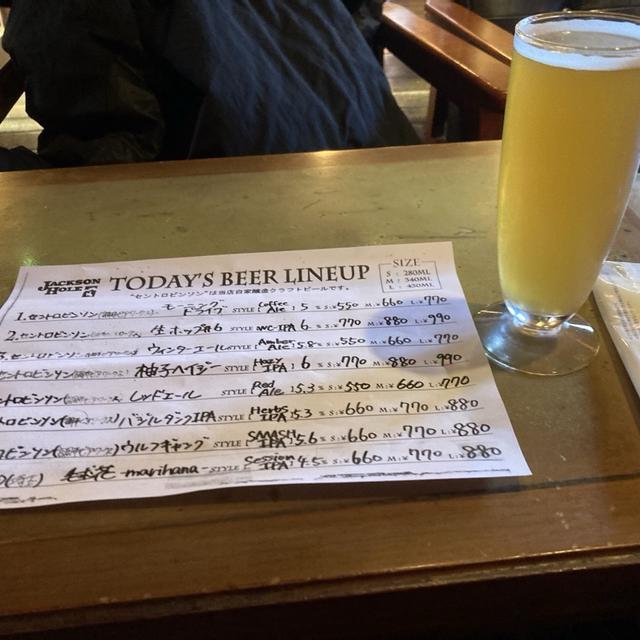 JACKSON HOLE
TODAY'S BEER LINEUP
"セントロビンソン"は当店自家醸造クラフトビールです。
SIZE
S : 280ML
M : 340ML
L : 450ML
1. セントロビンソン モーニングドライブ STYLE Coffee Ale 5 % S:¥550 M:¥660 L:¥770
2. セントロビンソン 生ホップ 6 STYLE WC-IPA 6 % S:¥770 M:¥880 L:¥990
セントロビンソン ウィンターエール STYLE Amber Ale 5.8 % S:¥550 M:¥660 L:¥770
セントロビンソン 柚子ヘイジー STYLE Hazy IPA 6 % S:¥770 M:¥880 L:¥990
ントロビンソン レッドエール STYLE Red Ale 5.3 % S:¥550 M:¥660 L:¥770
ロビンソン バジルダンクIPA STYLE Herbs IPA 5.3 % S:¥660 M:¥770 L:¥880
ビンソン ウルフギャング STYLE SMASH IPA 5.6 % S:¥660 M:¥770 L:¥880
-marihana- STYLE Session IPA 4.5 % S:¥660 M:¥770 L:¥880